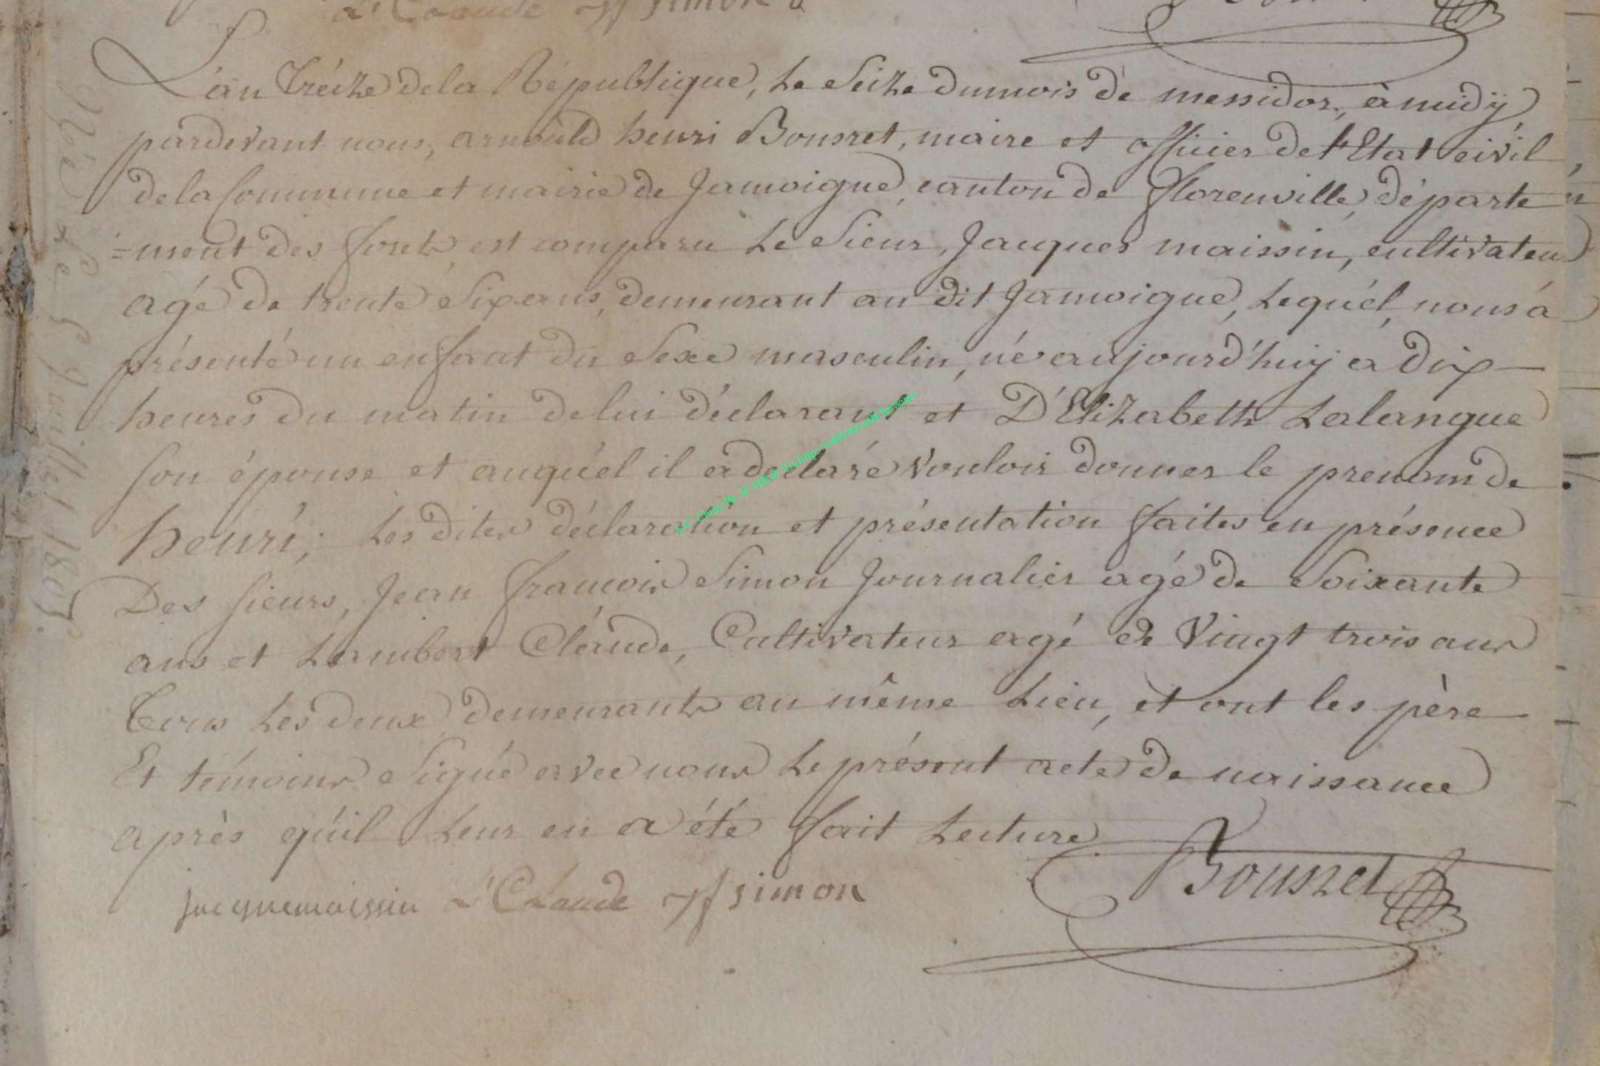 L' Claude JF Simon
L'an treize de la République, le Seize du mois de messidor, à midÿ
pardevant nous, arnould henri Bousret, maire et officier de l'Etat civil,
de la Commune et mairie de Jamoigne, canton de florenville, départe
=ment des forêts, est comparu le Sieur, Jacques maissin, cultivateur
agé de trente Six ans, demeurant au dit Jamoigne, lequel, nous à
présenté un enfant du Sexe masculin, né aujourd'huy à dix
heures du matin de lui déclarant et D'Elizabeth Lalangue
son épouse et auquel il a declaré vouloir donner le prenom de
henri; les dites déclaration et présentation faites en présence
Des sieurs, Jean françois Simon Journalier agé de Soixante
ans et Lambert Claude, Cultivateur agé de Vingt trois ans
tous les deux demeurants au même lieu, et ont les père
Et témoins Signé avec nous le présent acte de naissance
après qu'il leur en a été fait lecture
jacque maissin L' Claude JF simon Bousret
Né le 5 Juillet 1805